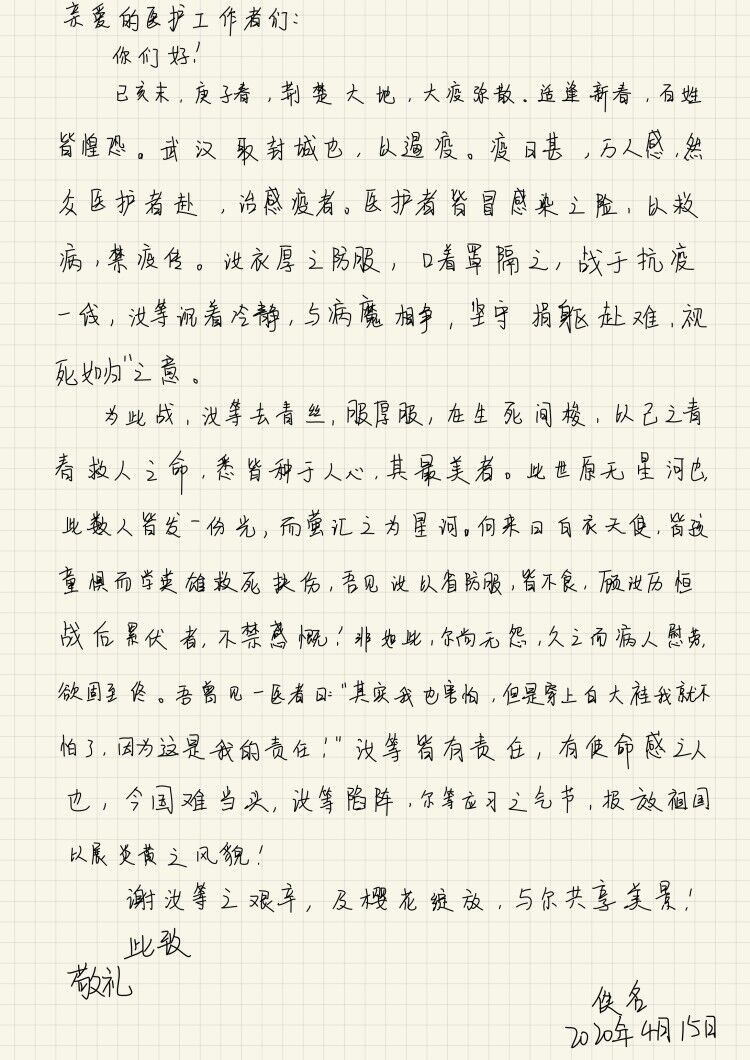 亲爱的医护工作者们：
你们好！
己亥末，庚子春，荆楚大地，大疫弥散。适逢新春，百姓
皆惶恐。武汉取封城也，以遏疫。疫日甚，万人感，然
众医护者赴，治感疫者。医护者皆冒感染之险，以救
病，禁疫传。汝衣厚之防服，口着罩隔之，战于抗疫
一线，汝等沉着冷静，与病魔相争，坚守捐躯赴难，视
死如归"之意。
为此战，汝等去青丝，服厚服，在生死间梭，以己之青
春救人之命，悉皆种于人心，其最美者。此世原无星河也，
此数人皆发一份光，而萤汇之为星河。何来日白衣天使，皆孩
童惧而学英雄救死扶伤，吾见汝以省防服，皆不食，顾汝历恒
战后累伏者，不禁感慨！非如此，尔尚无怨，久之而病人慰劳，
欲固至终。吾曾见一医者曰："其实我也害怕，但是穿上白大褂我就不
怕了，因为这是我的责任！"汝等皆有责任，有使命感之人
也，今国难当头，汝等陷阵，尔等应习之气节，报放祖国
以展炎黄之风貌！
谢汝等之艰辛，及樱花绽放，与尔共享美景！
此致
敬礼
佚名
2020年4月15日